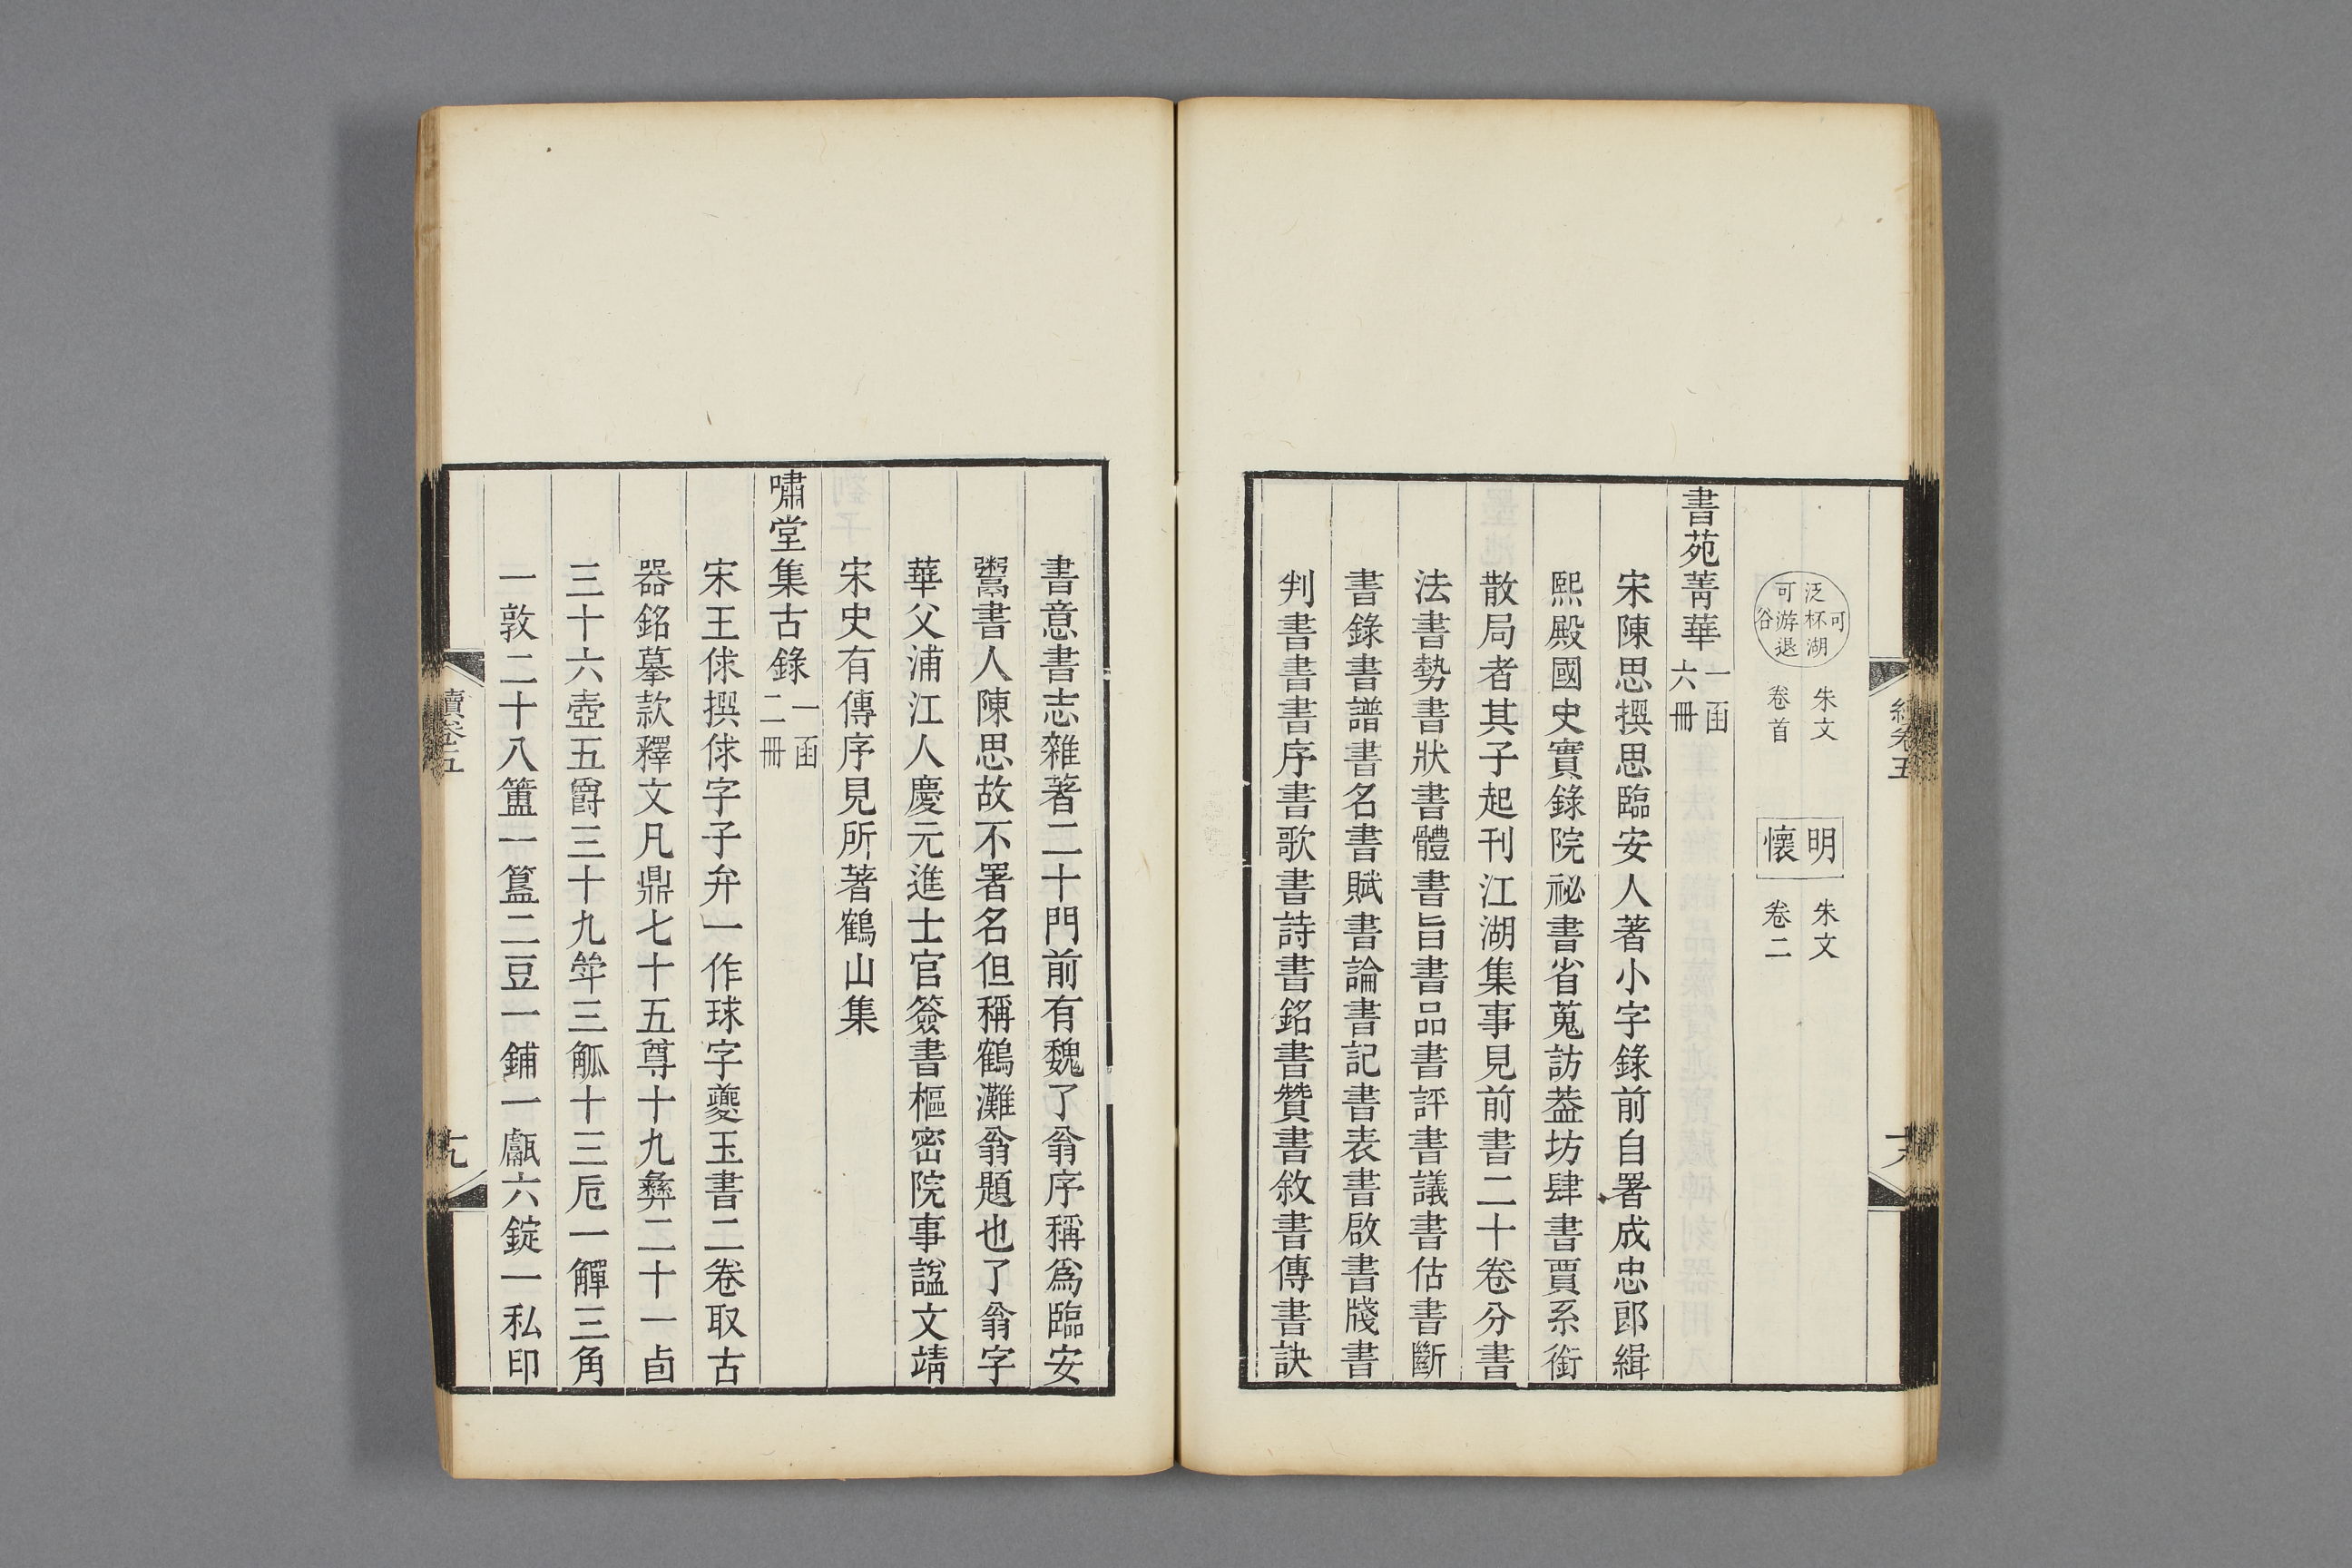 泛杯湖
可
可游退
谷
朱文
卷首
明
懷
朱文
卷二
書苑菁華
一函
六冊
宋陳思撰思臨安人著小字錄前自署成忠郎緝
熙殿國史實錄院祕書省蒐訪葢坊肆書賈系銜
散局者其子起刊江湖集事見前書二十卷分書
法書勢書狀書體書旨書品書評書議書估書斷
書錄書譜書名書賦書論書記書表書啟書牋書
判書書書序書歌書詩書銘書贊書敘書傳書訣
書意書志雜著二十門前有魏了翁序稱爲臨安
鬻書人陳思故不署名但稱鶴灘翁題也了翁字
華父浦江人慶元進士官簽書樞密院事諡文靖
宋史有傳序見所著鶴山集
嘯堂集古錄
一函
二冊
宋王俅撰俅字子弁一作球字夔玉書二卷取古
器銘摹款釋文凡鼎七十五尊十九彝二十一卣
三十六壺五爵三十九斝三觚十三卮一觶三角
一敦二十八簠一簋二豆一鋪一甗六錠一私印
續卷五